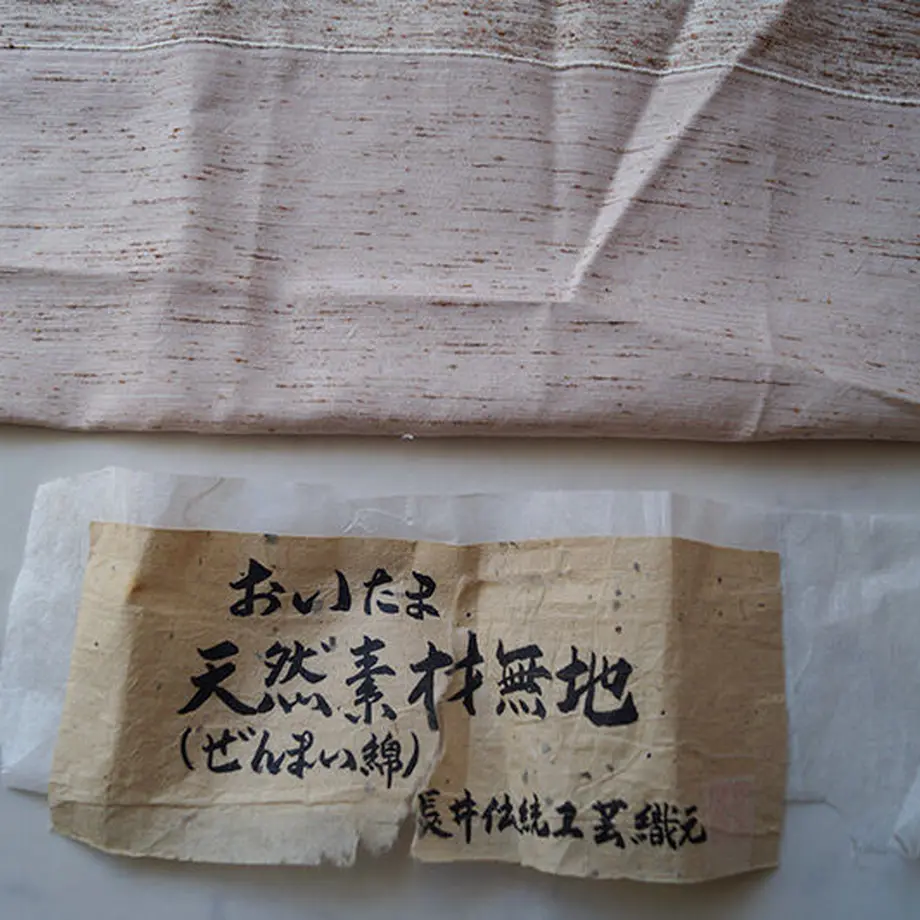 おいたま
天然素材無地
(ぜんまい綿)
長井伝統工芸織元